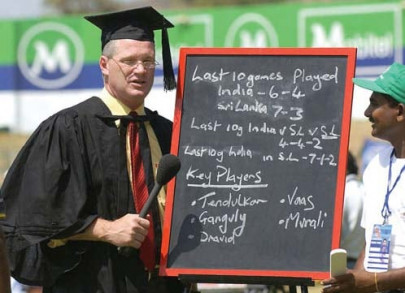 Mobitel
Last 10 games Played
India - 6 - 4
Sri Lanka 7 - 3
Last 10g India v S.L v S.L
4-4-2
Last 10g India in S.L - 7-1-2
Key Players
• Tendulkar
• Vaas
Ganguly
• Murali
Dravid